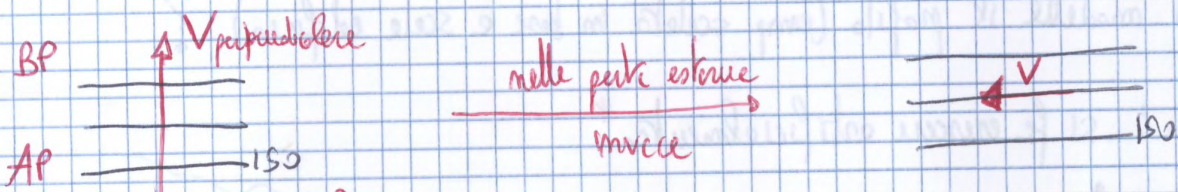 BP
V perpendicolare
AP
ISO
nelle parte esterne
invece
V
ISO